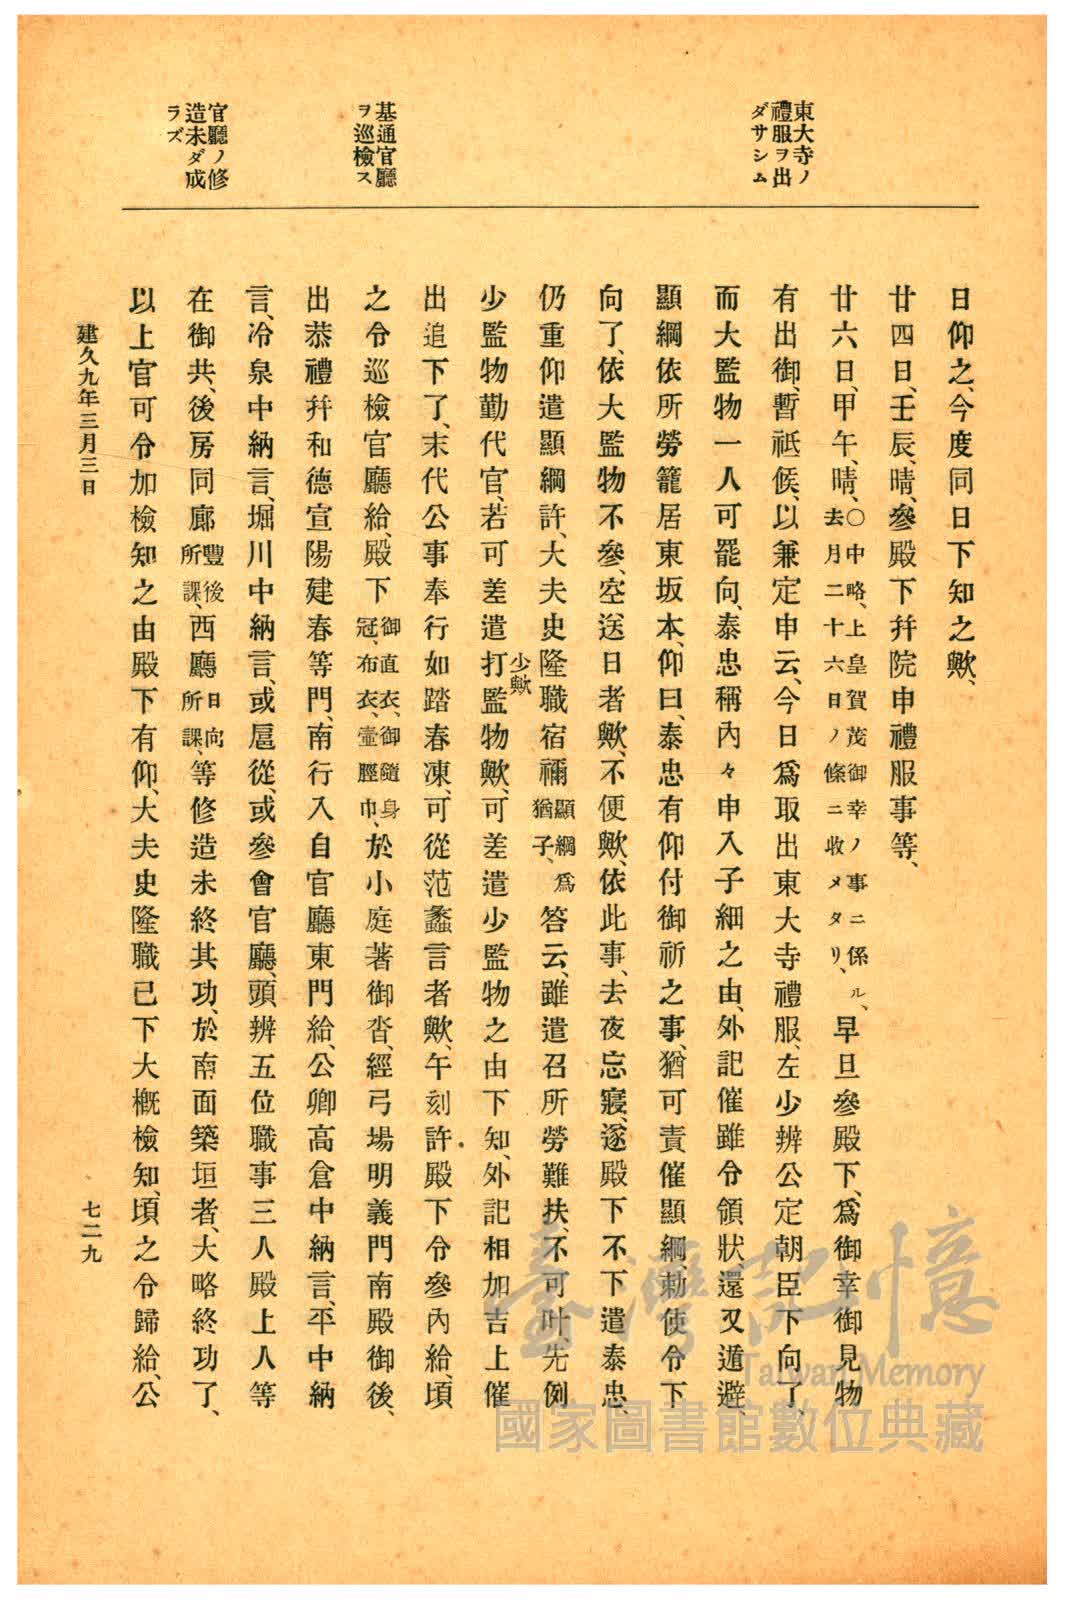 東大寺ノ
禮服ヲ出
ダサシム
基通官廳
ヲ巡檢ス
官廳ノ修
造未ダ成
ラズ
日仰之、今度同日下知之歟、
廿四日、壬辰、晴、參殿下幷院申禮服事等、
廿六日、甲午、晴、〇中略、上皇賀茂御幸ノ事ニ係ル、去月二十六日ノ條ニ收メタリ、早旦參殿下、爲御幸御見物
有出御、暫祗候、以兼定申云、今日爲取出東大寺禮服、左少辨公定朝臣下向了、
而大監物一人可罷向、泰忠稱內々申入子細之由、外記催雖令領狀還又遁避、
顯綱依所勞籠居東坂本、仰曰、泰忠有仰付御祈之事、猶可責催顯綱、勅使令下
向了、依大監物不參、空送日者歟、不便歟、依此事、去夜忘寢、遂殿下不下遣泰忠、
仍重仰遣顯綱許、大夫史隆職宿禰顯綱爲猶子、答云、雖遣召所勞難扶、不可叶、先例
少監物勤代官、若可差遣打少歟監物歟、可差遣少監物之由下知、外記相加吉上催
出追下了、末代公事奉行如踏春凍、可從范蠡言者歟、午刻許殿下令參內給、頃
之令巡檢官廳給、殿下御直衣、御隨身冠、布衣、壷脛巾、於小庭著御沓、經弓場明義門南殿御後、
出恭禮幷和德宣陽建春等門、南行入自官廳東門給、公卿高倉中納言、平中納
言、冷泉中納言、堀川中納言、或扈從、或參會官廳、頭辨五位職事三人殿上人等
在御共、後房同廊豐後所課、西廳日向所課、等修造未終其功、於南面築垣者、大略終功了、
以上官可令加檢知之由殿下有仰、大夫史隆職已下大概檢知、頃之令歸給、公
建久九年三月三日
七二九
臺灣記憶
Taiwan Memory
國家圖書館數位典藏